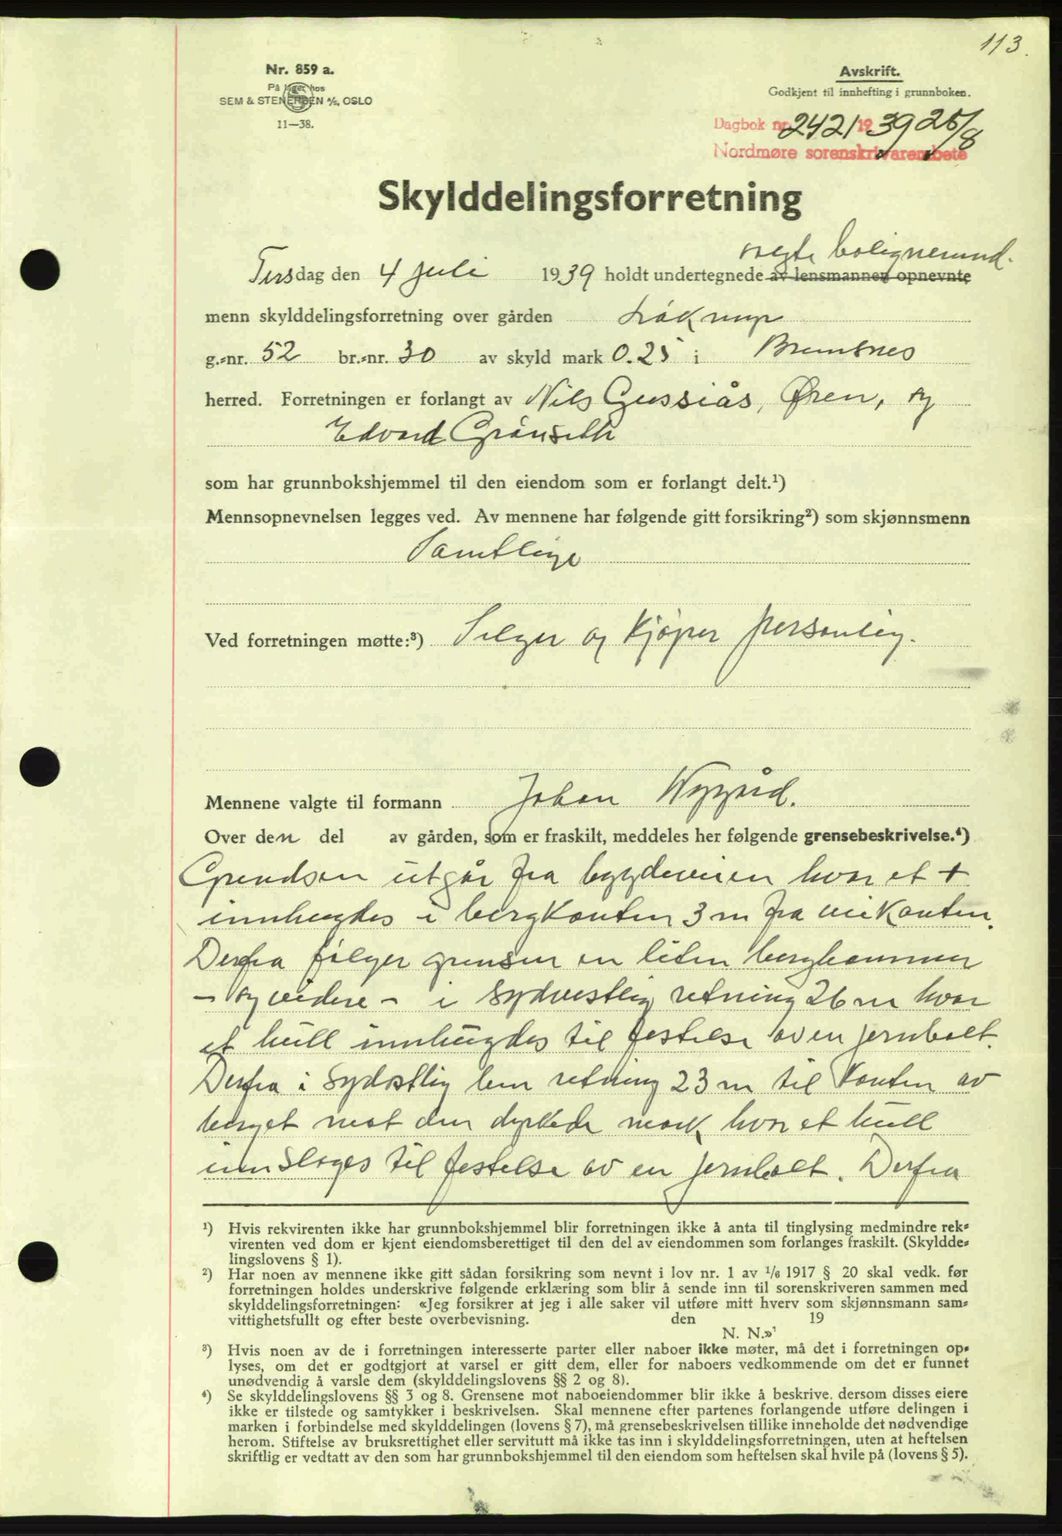 113.
Nr. 859 a.
På lager hos
SEM & STENERSEN A/S, OSLO
11—38.
Avskrift.
Godkjent til innhefting i grunnboken.
Dagbok nr. 2421 1939 25/8
Nordmøre sorenskrivarembete
Skylddelingsforretning
valgte
Tirsdag den 4 juli 1939 holdt undertegnede av lensmannen opnevnte
menn skylddelingsforretning over gården
g.-nr. 52 br.-nr. 30 av skyld mark 0.25 i Bremsnes
herred. Forretningen er forlangt av Nils Gussiås, Øren, og
Edvard Grønseth
som har grunnbokshjemmel til den eiendom som er forlangt delt.¹)
Mennsopnevnelsen legges ved. Av mennene har følgende gitt forsikring²) som skjønnsmenn
Samtlige
Ved forretningen møtte:³) Selger og Kjøper personlig.
Mennene valgte til formann Johan
Over den del av gården, som er fraskilt, meddeles her følgende grensebeskrivelse.⁴)
Grendsen utgår fra bygdeveien hvor et +
innhugdes i bergkanten 3 m fra veikanten.
Derfra følger grensen en liten berghammer
– og videre – i sydvestlig retning 26 m hvor
et hull innhugdes til festelse av en jernbolt.
Derfra i sydostlig retning 23 m til kanten av
berget mot den dyrkede mark hvor et hull
innslages til festelse av en jernbolt. Derfra
¹) Hvis rekvirenten ikke har grunnbokshjemmel blir forretningen ikke å anta til tinglysing medmindre rek-
virenten ved dom er kjent eiendomsberettiget til den del av eiendommen som forlanges fraskilt. (Skyldde-
lingslovens § 1).
²) Har noen av mennene ikke gitt sådan forsikring som nevnt i lov nr. 1 av 1/6 1917 § 20 skal vedk. før
forretningen holdes underskrive følgende erklæring som blir å sende inn til sorenskriveren sammen med
skylddelingsforretningen: «Jeg forsikrer at jeg i alle saker vil utføre mitt hverv som skjønnsmann sam-
vittighetsfullt og efter beste overbevisning. den 19
N. N.»
³) Hvis noen av de i forretningen interesserte parter eller naboer ikke møter, må det i forretningen op-
lyses, om det er godtgjort at varsel er gitt dem, eller for naboers vedkommende om det er funnet
unødvendig å varsle dem (skylddelingslovens §§ 2 og 8).
⁴) Se skylddelingslovens §§ 3 og 8. Grensene mot naboeiendommer blir ikke å beskrive, dersom disses eiere
ikke er tilstede og samtykker i beskrivelsen. Skal mennene efter partenes forlangende utføre delingen i
marken i forbindelse med skylddelingen (lovens § 7), må grensebeskrivelsen tillike inneholde det nødvendige
herom. Stiftelse av bruksrettighet eller servitutt må ikke tas inn i skylddelingsforretningen, uten at heftelsen
skriftlig er vedtatt av den som har grunnbokshjemmel til den eiendom som heftelsen skal hvile på (lovens § 5).